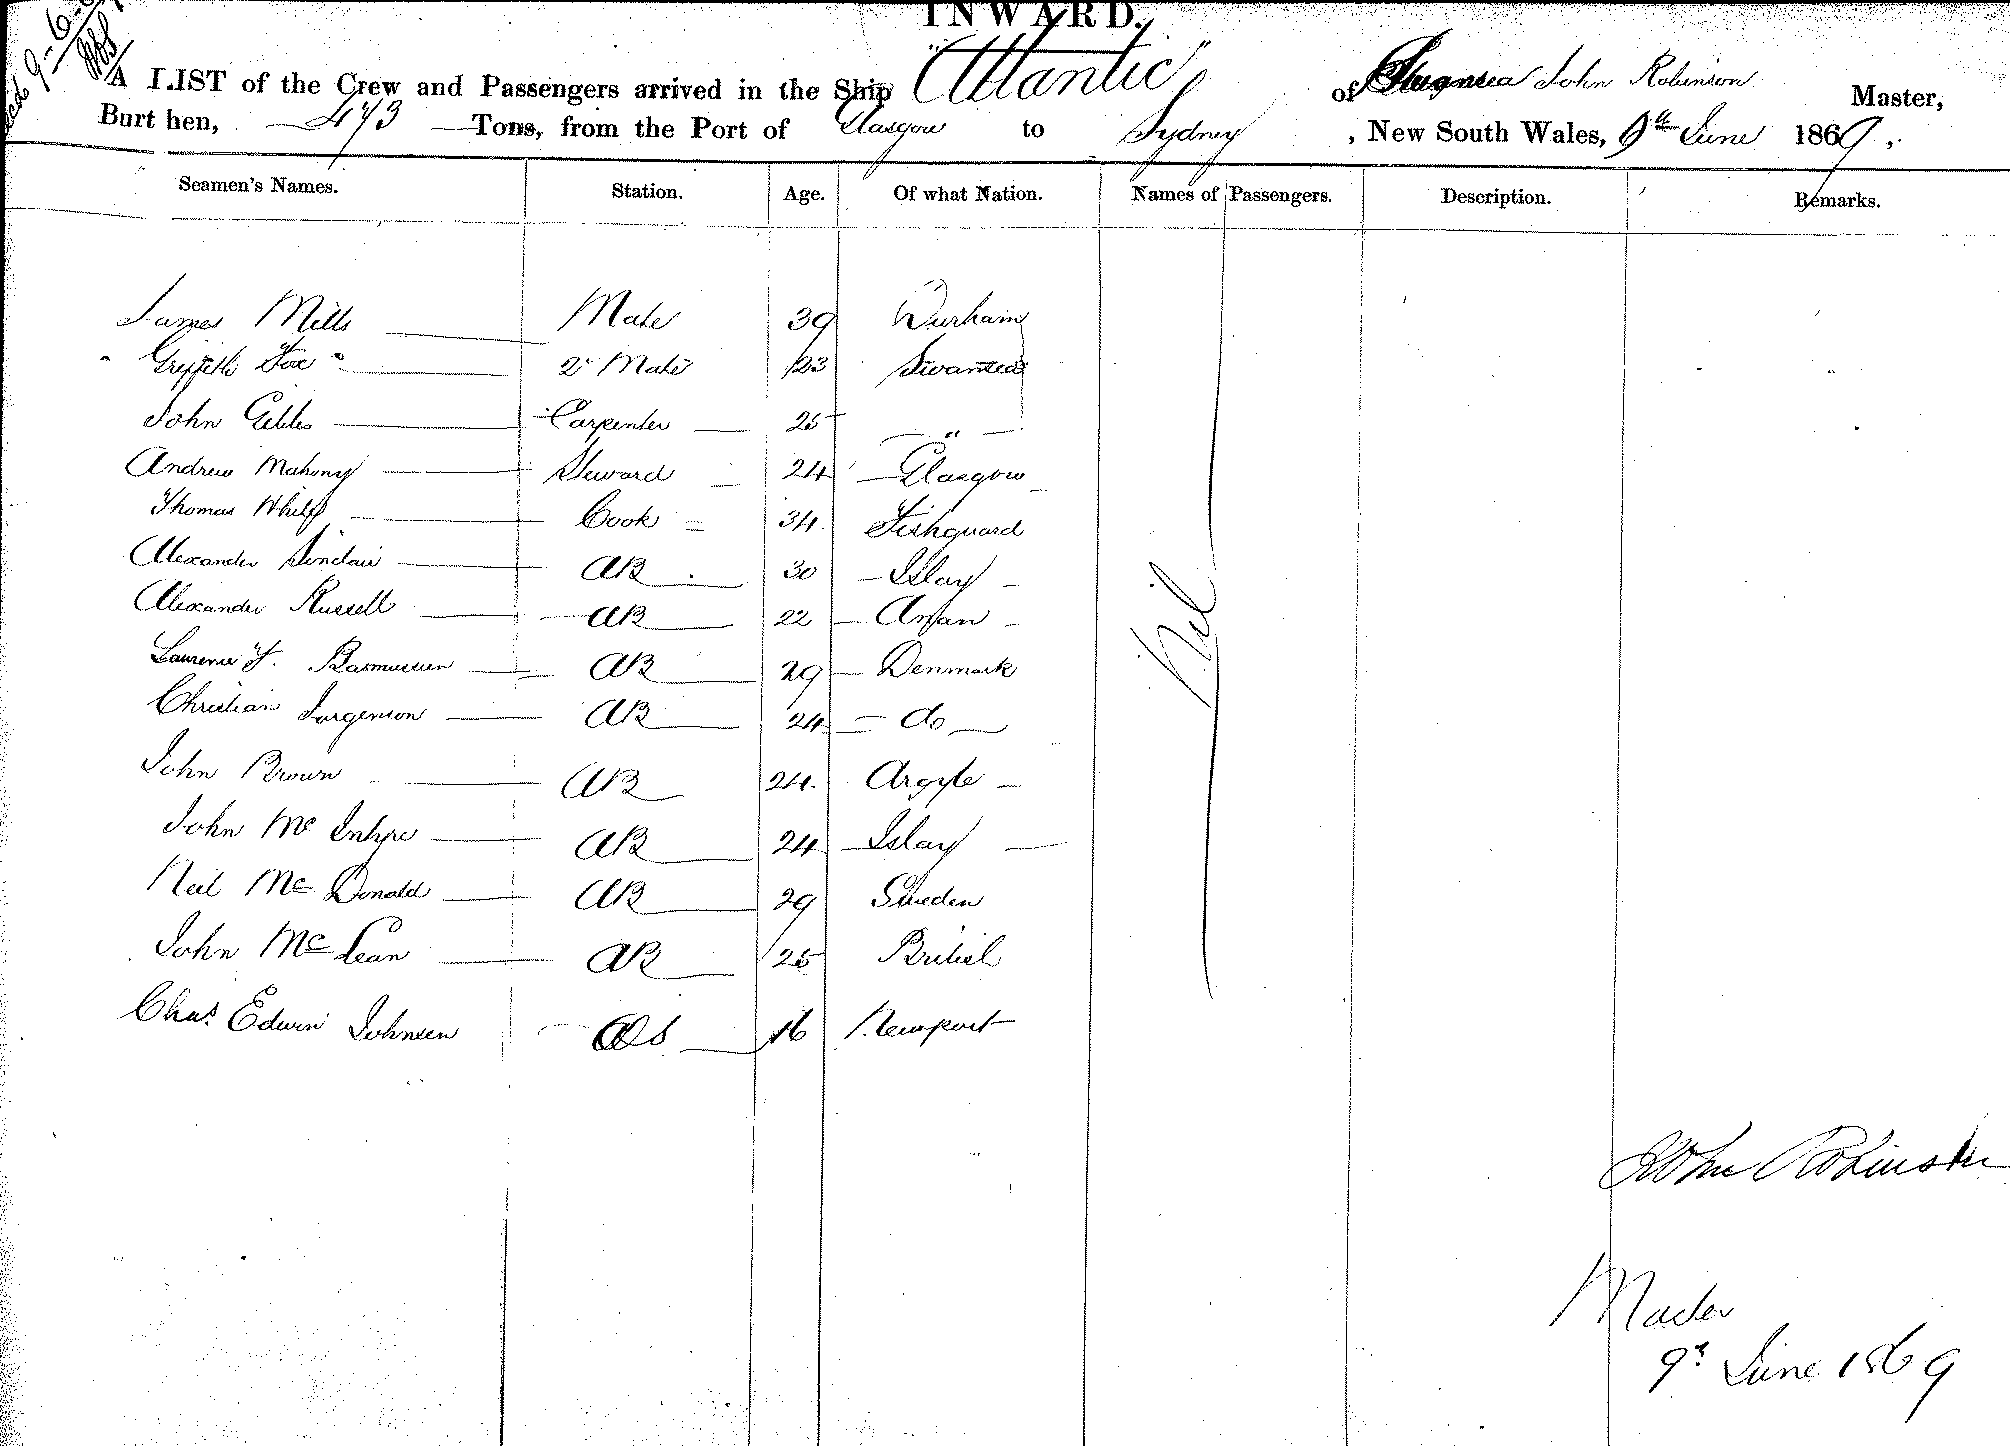 INWARD.
A LIST of the Crew and Passengers arrived in the Ship "Atlantic" of Swansea John Robinson Master,
Burthen, 473 Tons, from the Port of Glasgow to Sydney, New South Wales, 9th June 1869.
Seamen's Names. Station. Age. Of what Nation. Names of Passengers. Description. Remarks.
James Mills Mate 39 Durham
Griffith Fox 2r Mate 23 Swansea
John Gibbs Carpenter 25 "
Andrew Mahony Steward 24 Glasgow
Thomas Cook 34 Fishguard
Alexander Sinclair AB 30 Islay
Alexander Russell AB 22 Arran
Laurence F. Rasmussen AB 29 Denmark
Christian Jorgenson AB 24 do
John Brown AB 24 Argyle
John McIntyre AB 24 Islay
Neil McDonald AB 29 Sweden
John McLean AB 25 British
Chas. Edwin Johnsen OS 16 Newport
Nil
John Robinson
Master
9th June 1869